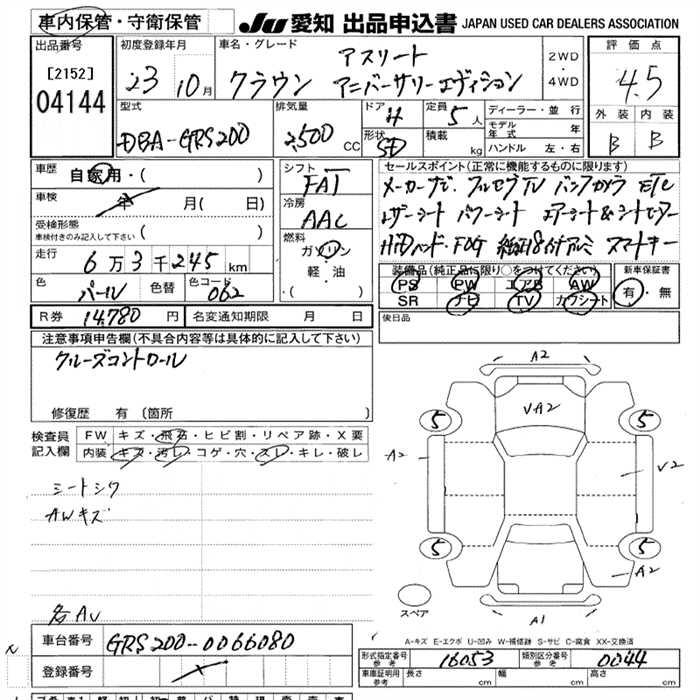 車内保管・守衛保管 JU 愛知 出品申込書 JAPAN USED CAR DEALERS ASSOCIATION
出品番号 初度登録年月 車名・グレード 評価点
[2152] 23 10月 クラウン アスリート アニバーサリーエディション 2WD・4WD 4.5
04144
型式 排気量 ドア 4 定員 5人 ディーラー・並行 外装 内装
DBA-GRS200 2,500 CC 形状 SD 積載 kg モデル年式 年 B B
ハンドル 左・右
車歴 自家用・( ) シフト セールスポイント(正常に機能するものに限ります)
FAT メーカーナビ・フルセグTV バックカメラ ETC
車検 年 月( 日) 冷房 レザーシート パワーシート エアーシート&シートヒーター
受検形態 AAC HIDヘッド・FOG 純正18吋アルミ スマートキー
車検付きのみ記入して下さい ( )
走行 6万3千245km 燃料 ガソリン 装備品(純正品に限り○をつけてください) 新車保証書
軽・油 PS PW エアB AW 有・無
色 パール 色替 色コード 062 ・( ) SR ナビ TV カワシート
R券 14,780 円 名変通知期限 月 日 後日品
注意事項申告欄(不具合内容等は具体的に記入して下さい)
クルーズコントロール
修復歴 有 (箇所
検査員記入欄 FW キズ・飛石・ヒビ割・リペア跡・X要
内装 キズ・汚レ・コゲ・穴・スレ・キレ・破レ
シートシワ
AWキズ
各AU
A2
VA2
5 5
A2 V2
5 5
A2
スペア A1
A-キズ E-エクボ U-凹み W-補修跡 S-サビ C-腐食 XX-交換済
車台番号 GRS200-0066080
登録番号
形式指定番号 参考 16053 類別区分番号 参考 0044
車庫証明用 参考 長さ cm 幅 cm 高さ cm